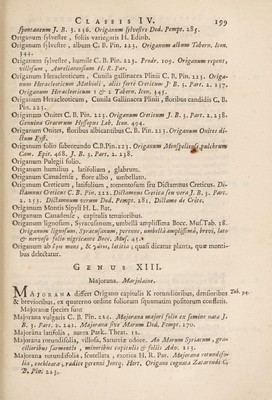 CLASSIS IV. 199
spontaneum J. B. 3. 236. Origanum sylvestre Dod. Pempt. 285.
Origanum sylvestre, foliis variegatis H. Edinb.
Origanum sylvestre, album C. B. Pin. 223. Origanum album Tabern. Icon.
344.
Origanum sylvestre, humile C. B. Pin. 223. Prodr. 109. Origanum repens,
villosum, Aurelianensium H. R. Par.
Origanum Heracleoticum, Cunila gallinacea Plinii C. B. Pin. 223. Origa-
num Heracleoticum Mathioli, aliis forté Creticum J. B. 3. Part. 2. 237.
Origanum Heracleoticum 1 & 2 Tabern. Icon. 345.
Origanum Heracleoticum, Cunila Gallinacea Plinii, floribus candidis C. B.
Pin. 223.
Origanum Onites C. B. Pin. 223. Origanum Creticum J. B. 3. Part. 2. 238.
Genuina Graecorum Hyssopus Lob. Icon. 494.
Origanum Onites, floribus albicantibus C. B. Pin. 223. Origanum Onites di-
ctum Eyst.
Origanum folio subrotundo C. B. Pin. 223. Origanum Monspeliense pulchrum
Cam. Epit. 468. J. B. 3. Part. 2. 238.
Origanum Pulegii folio.
Origanum humilius, latifolium, glabrum.
Origanum Canadense, flore albo, umbellato.
Origanum Creticum, latifolium, tomentosum seu Dictamnus Creticus. Di-
ctamnus Creticus C. B. Pin. 222. Dictamnus Cretica seu vera J. B. 3. Part.
2. 253. Dictamnum verum Dod. Pempt. 281. Dictame de Crete.
Origanum Montis Sipyli H. L. Bat.
Origanum Canadense, capitulis tenuioribus.
Origanum lignosum, Syracusanum, umbella amplissima Bocc. Mus. Tab. 38.
Origanum lignosum, Syracusanum, perenne, umbellâ amplissimâ, brevi, lato
& nervoso folio nigricante Bocc. Mus. 45.
Origanum ab
laetitia, quasi dicatur planta, quae monti-
bus delectatur.
GENUS XIII.
Majorana. Marjolaine.
MAJORANA differt Origano capitulis K rotundioribus, densioribus Tab. 94.
& brevioribus, ex quaterno ordine foliorum squamatim positorum constatis.
Majoranae species sunt
Majorana vulgaris C. B. Pin. 224. Majorana majori folio ex semine nata J.
B. 3. Part. 2. 241. Majorana sive Marum Dod. Pempt. 270.
Majorana latifolia, nutra Park. Theat. 12.
Majorana rotundifolia, villosa, Saturiae odore. An Marum Syriacum, gra-
cilioribus sarmentis, minoribus capitulis & foliis Adv. 213.
Majorana rotundifolia, scutellata, exotica H. R. Par. Majorana rotundifo-
lia, cochleata, radice perenni Joncq. Hort. Origano cognata Zatarendi C.
B. Pin 223.